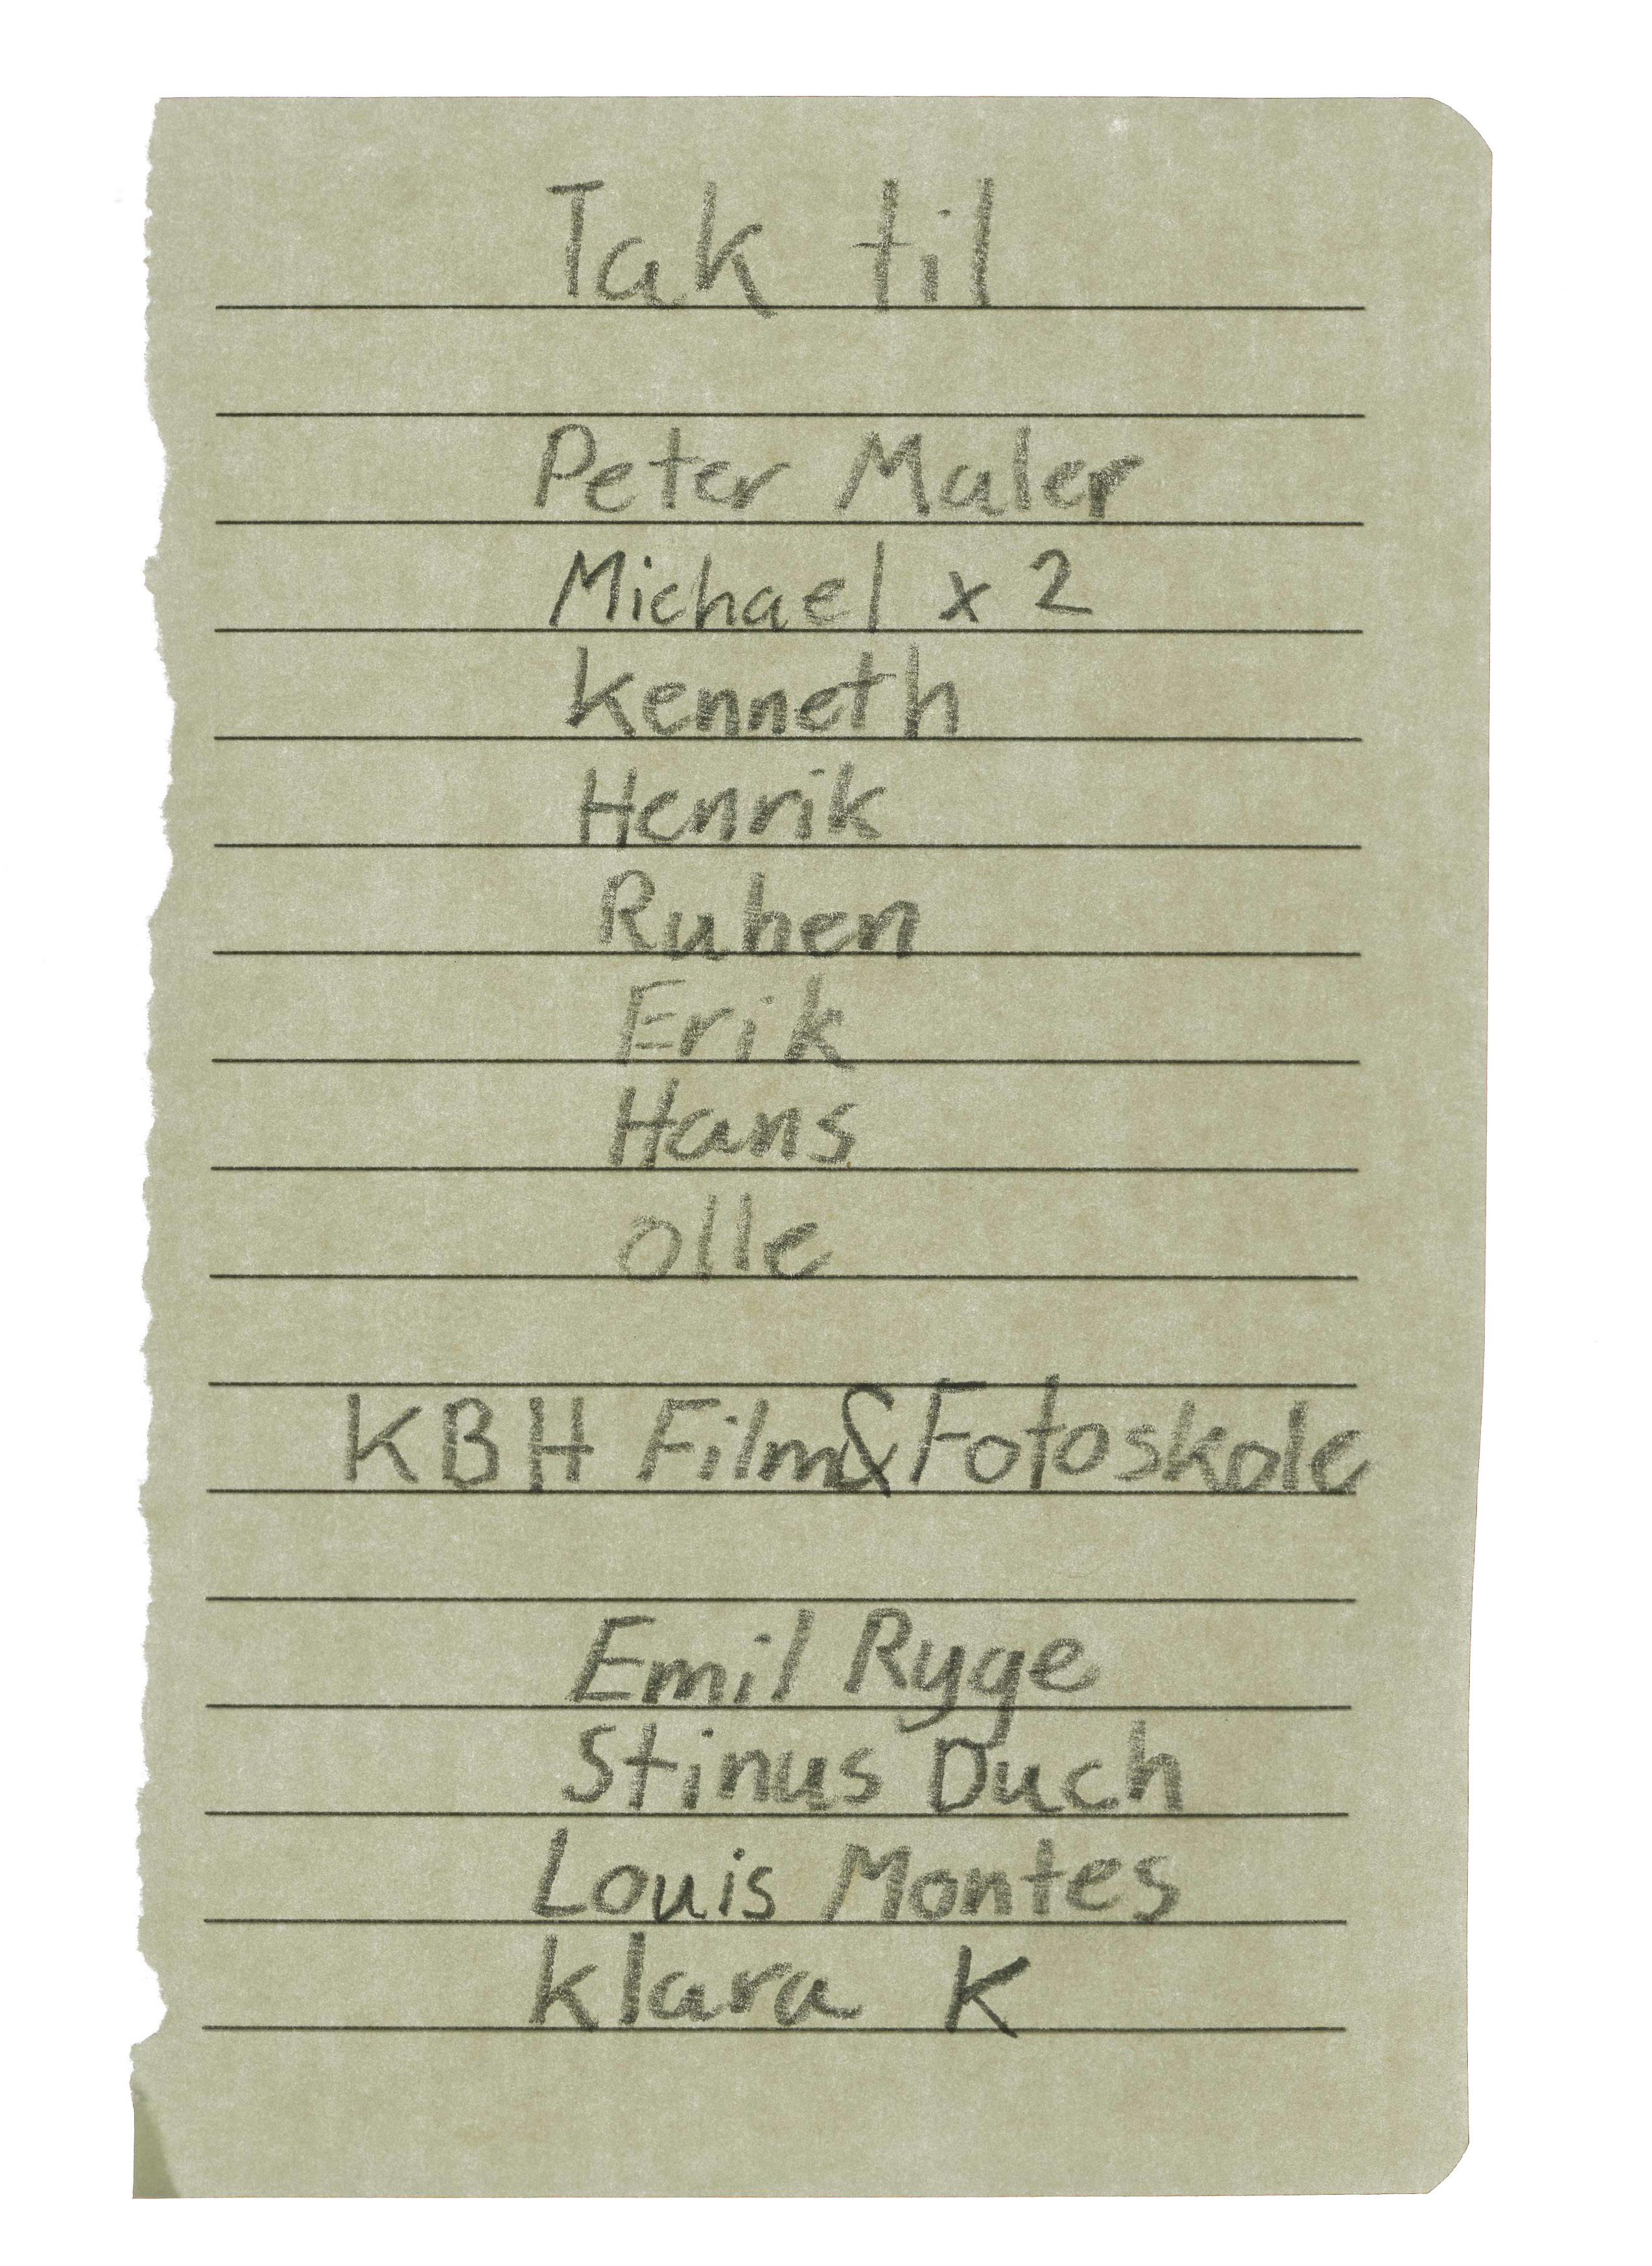 Tak til
Peter Maler
Michael x 2
Kenneth
Henrik
Ruben
Erik
Hans
Olle
KBH Film & Fotoskole
Emil Ryge
Stinus Duch
Louis Montes
Klara K